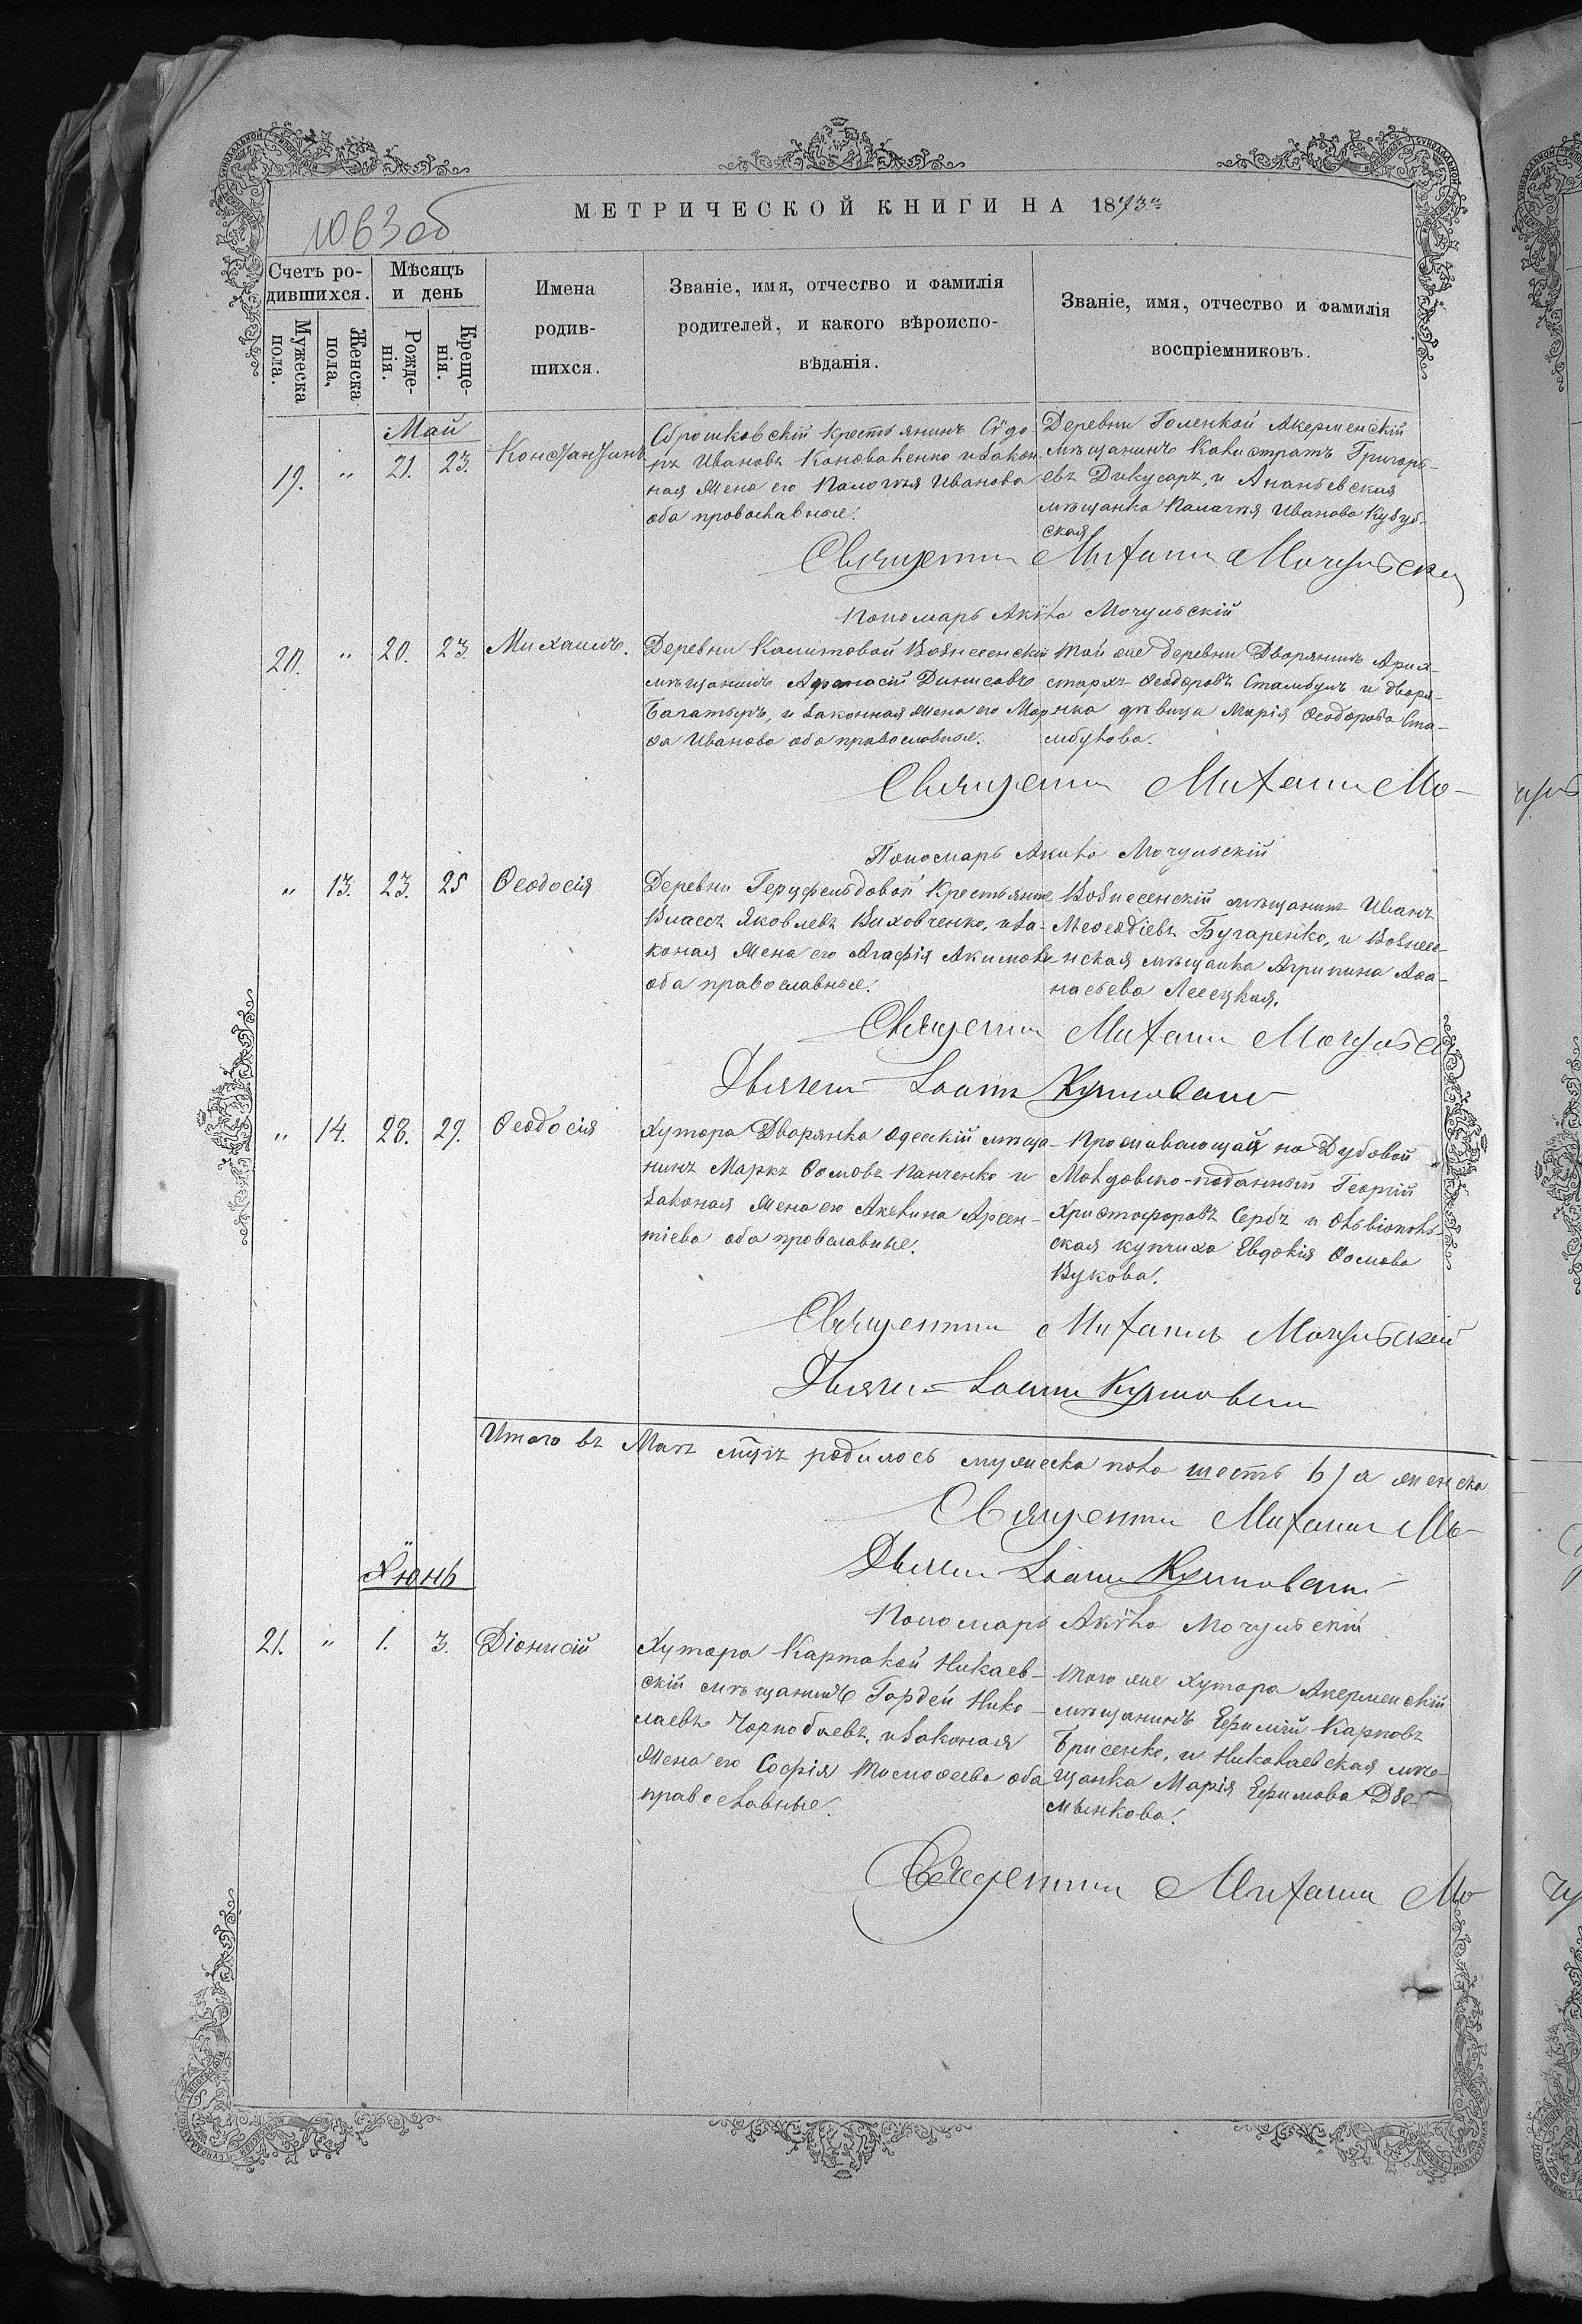 МЕТРИЧЕСКОЙ КНИГИ НА 1873
1063 об
Счетъ ро-
дившихся.
Мужеска
пола.
Женска
пола,
Мѣсяцъ
и день
Рожде-
нія.
Креще-
нія.
Имена
родив-
шихся.
Званіе, имя, отчество и фамилія
родителей, и какого вѣроиспо-
вѣданія.
Званіе, имя, отчество и фамилія
воспріемниковъ.
Май
19. " 21. 23. Константинъ
крестьянинъ Сидо-
ръ Ивановъ Коноваленко и закон-
ная жена его Палагия Иванова
оба православные.
Деревни Голенкой Акерменскій
мѣщанинъ Калистратъ Григорь-
евъ Дикусаръ, и Ананьевская
мѣщанка Палагия Иванова Кувуб-
ская
Священникъ Михаилъ Мочульскій
Пономарь Акила Мочульскій
20. " 20. 23. Михаилъ.
Деревни Калитовой Вознесенскій
мѣщанинъ Афанасій Дионисовъ
Багатыръ, и законная жена его Мар-
ѳа Иванова оба православные.
той же деревни Дворянинъ Арис-
тархъ Ѳеодоровъ Стамбулъ и дворя-
нка дѣвица Марія Ѳеодорова Ста-
мбулова.
Священникъ Михаилъ Мо-
Пономарь Акила Мочульскій
" 13. 23. 25 Ѳеодосія
Деревни Герцфельдовой Крестьянинъ
Власъ Яковлевъ Виховченко, и за-
коная жена его Агафія Акимова
оба православные.
Вознесенскій мѣщанинъ Иванъ
Меѳодіевъ Бугаренко, и Вознесе-
нская мѣщанка Агрипина Аѳа-
насьева Лесецкая.
Священникъ Михаилъ Мочульскій
Дьячекъ Іоаннъ
" 14. 28. 29. Ѳеодосія
Хутора Дворянка Одесскій мѣща-
нинъ Маркъ Ѳомовъ Панченко и
законая жена его Акелина Арсен-
тіева оба православные.
Проживающай на Дубовой
Молдовско-поданный Георгій
Христофоровъ Сербъ и Ольвіополь-
ская купчиха Евдокія Ѳомова
Вукова.
Священникъ Михаилъ Мочульскій
Дьячекъ Іоаннъ
Итого въ Маѣ мцѣ родилось мужеска пола шесть 6/а женска
Священникъ Михаилъ Мо-
Дьячекъ Іоаннъ
Пономарь Акила Мочульскій
Июнь
21. " 1. 3. Діонисій
Хутора Картакой Никаев-
скій мѣщанинъ Гордей Нико-
лаевъ Чорнобаевъ, и законая
жена его Софія Тимоѳеева оба
православные.
того же хутора Акерменскій
мѣщанинъ Ефимій Карповъ
Брисенко, и Николаевская мѣ-
щанка Марія Ефимова
Священникъ Михаилъ Мо